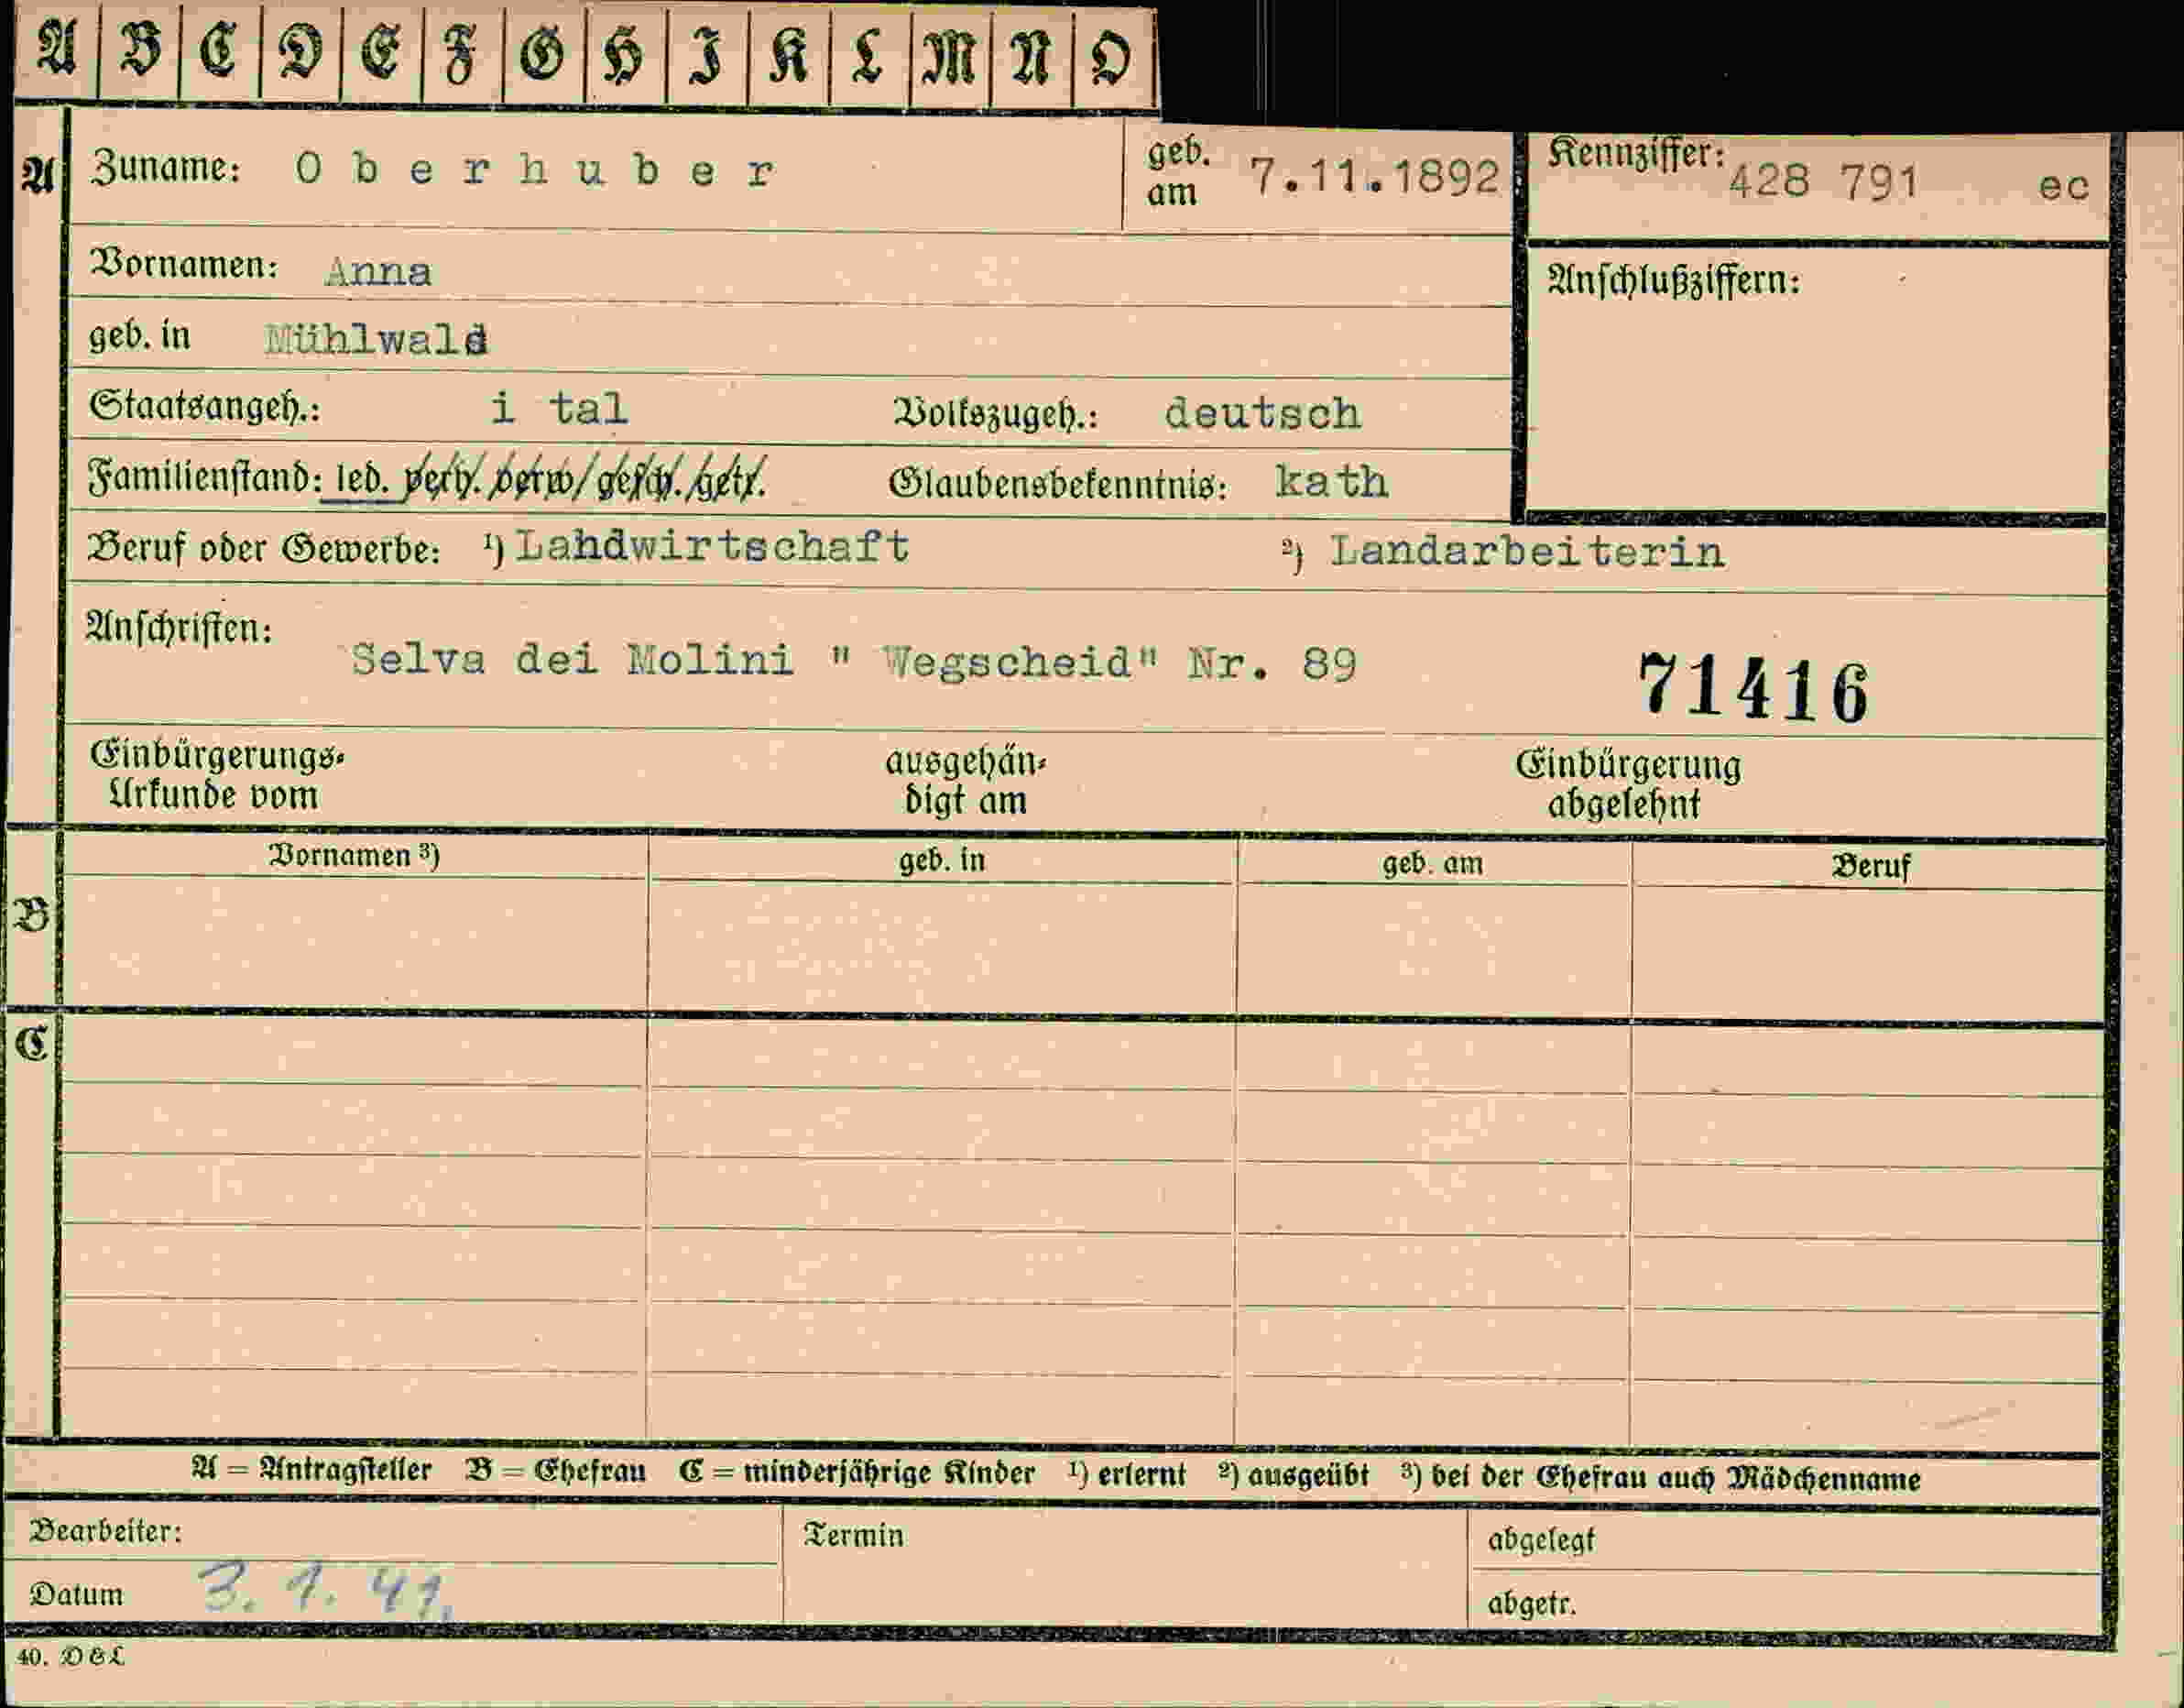 A B C D E F G H I K L M N O
A Zuname: Oberhuber geb. am 7.11.1892 Kennziffer: 428 791 ec
Vornamen: Anna Anschlußziffern:
geb. in Mühlwald
Staatsangeh.: i tal Volkszugeh.: deutsch
Familienstand: led. verh. verw/gesch./getr. Glaubensbekenntnis: kath
Beruf oder Gewerbe: ¹) Lahdwirtschaft ²) Landarbeiterin
Anschriften:
Selva dei Molini " Wegscheid" Nr. 89 71416
Einbürgerungs- ausgehän- Einbürgerung
Urkunde vom digt am abgelehnt
Vornamen ³) geb. in geb. am Beruf
B
C
A = Antragsteller B = Ehefrau C = minderjährige Kinder ¹) erlernt ²) ausgeübt ³) bei der Ehefrau auch Mädchenname
Bearbeiter: Termin abgelegt
Datum 3. 1. 41. abgetr.
40. D & L